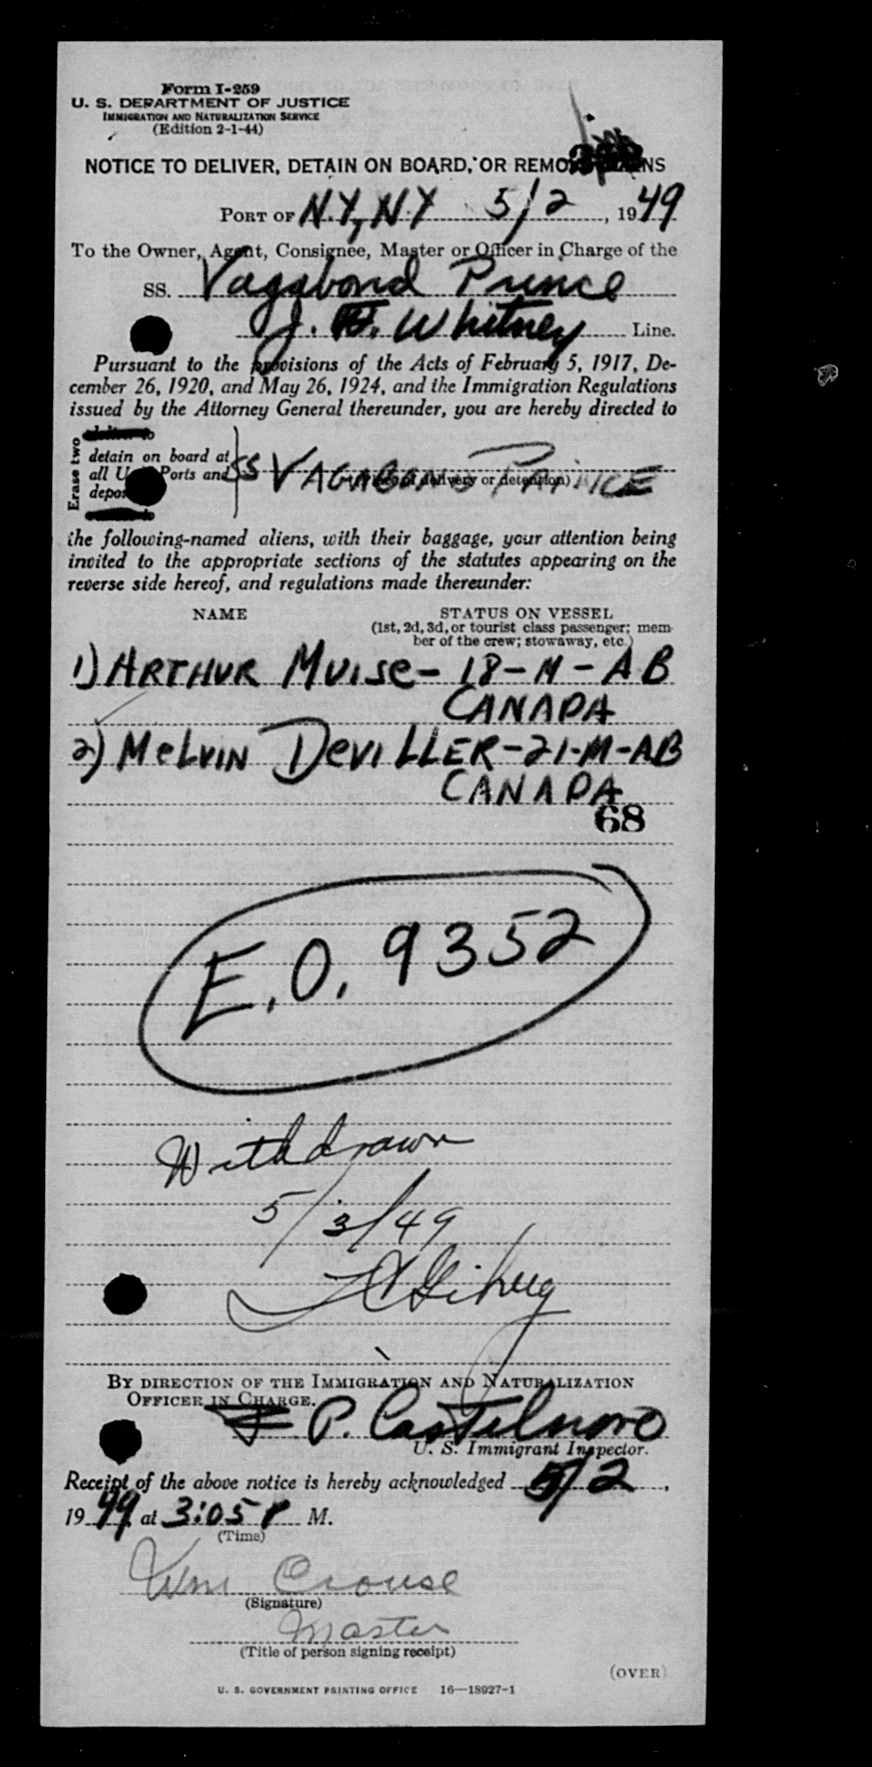 Form I-259
U. S. DEPARTMENT OF JUSTICE
IMMIGRATION AND NATURALIZATION SERVICE
(Edition 2-1-44)
NOTICE TO DELIVER, DETAIN ON BOARD, OR
PORT OF N.Y, NY 5/2, 1949
To the Owner, Agent, Consignee, Master or Officer in Charge of the
SS. Vagabond Prince
J. Whitney Line.
Pursuant to the provisions of the Acts of February 5, 1917, De-
cember 26, 1920, and May 26, 1924, and the Immigration Regulations
issued by the Attorney General thereunder, you are hereby directed to
Erase two
detain on board at
all U. Ports and SS VAGABOND PRINCE
(Place of delivery or detention)
the following-named aliens, with their baggage, your attention being
invited to the appropriate sections of the statutes appearing on the
reverse side hereof, and regulations made thereunder:
NAME STATUS ON VESSEL
(1st, 2d, 3d, or tourist class passenger; mem-
ber of the crew; stowaway, etc.)
1) ARTHUR MUISE - 18 - M - AB
CANADA
2) MELVIN DEVILLER - 21 - M - AB
CANADA
68
E.O. 9352
Withdrawn
5/3/49
BY DIRECTION OF THE IMMIGRATION AND NATURALIZATION
OFFICER IN CHARGE.
P. Castelnovo
U. S. Immigrant Inspector.
Receipt of the above notice is hereby acknowledged 5/2,
1949 at 3:05 P M.
(Time)
Wm Crouse
(Signature)
Master
(Title of person signing receipt)
(OVER)
U. S. GOVERNMENT PRINTING OFFICE 16—18927-1